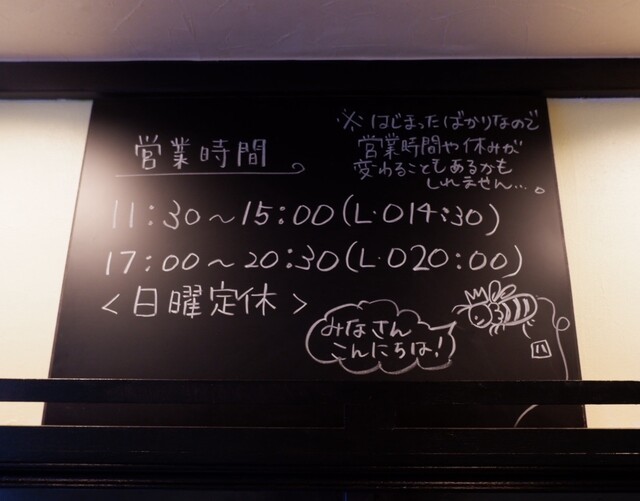 営業時間
※はじまったばかりなので
営業時間や休みが
変わることもあるかも
しれません...。
11:30~15:00(L・O14:30)
17:00~20:30(L・O20:00)
<日曜定休>
みなさん
こんにちは!
ハ